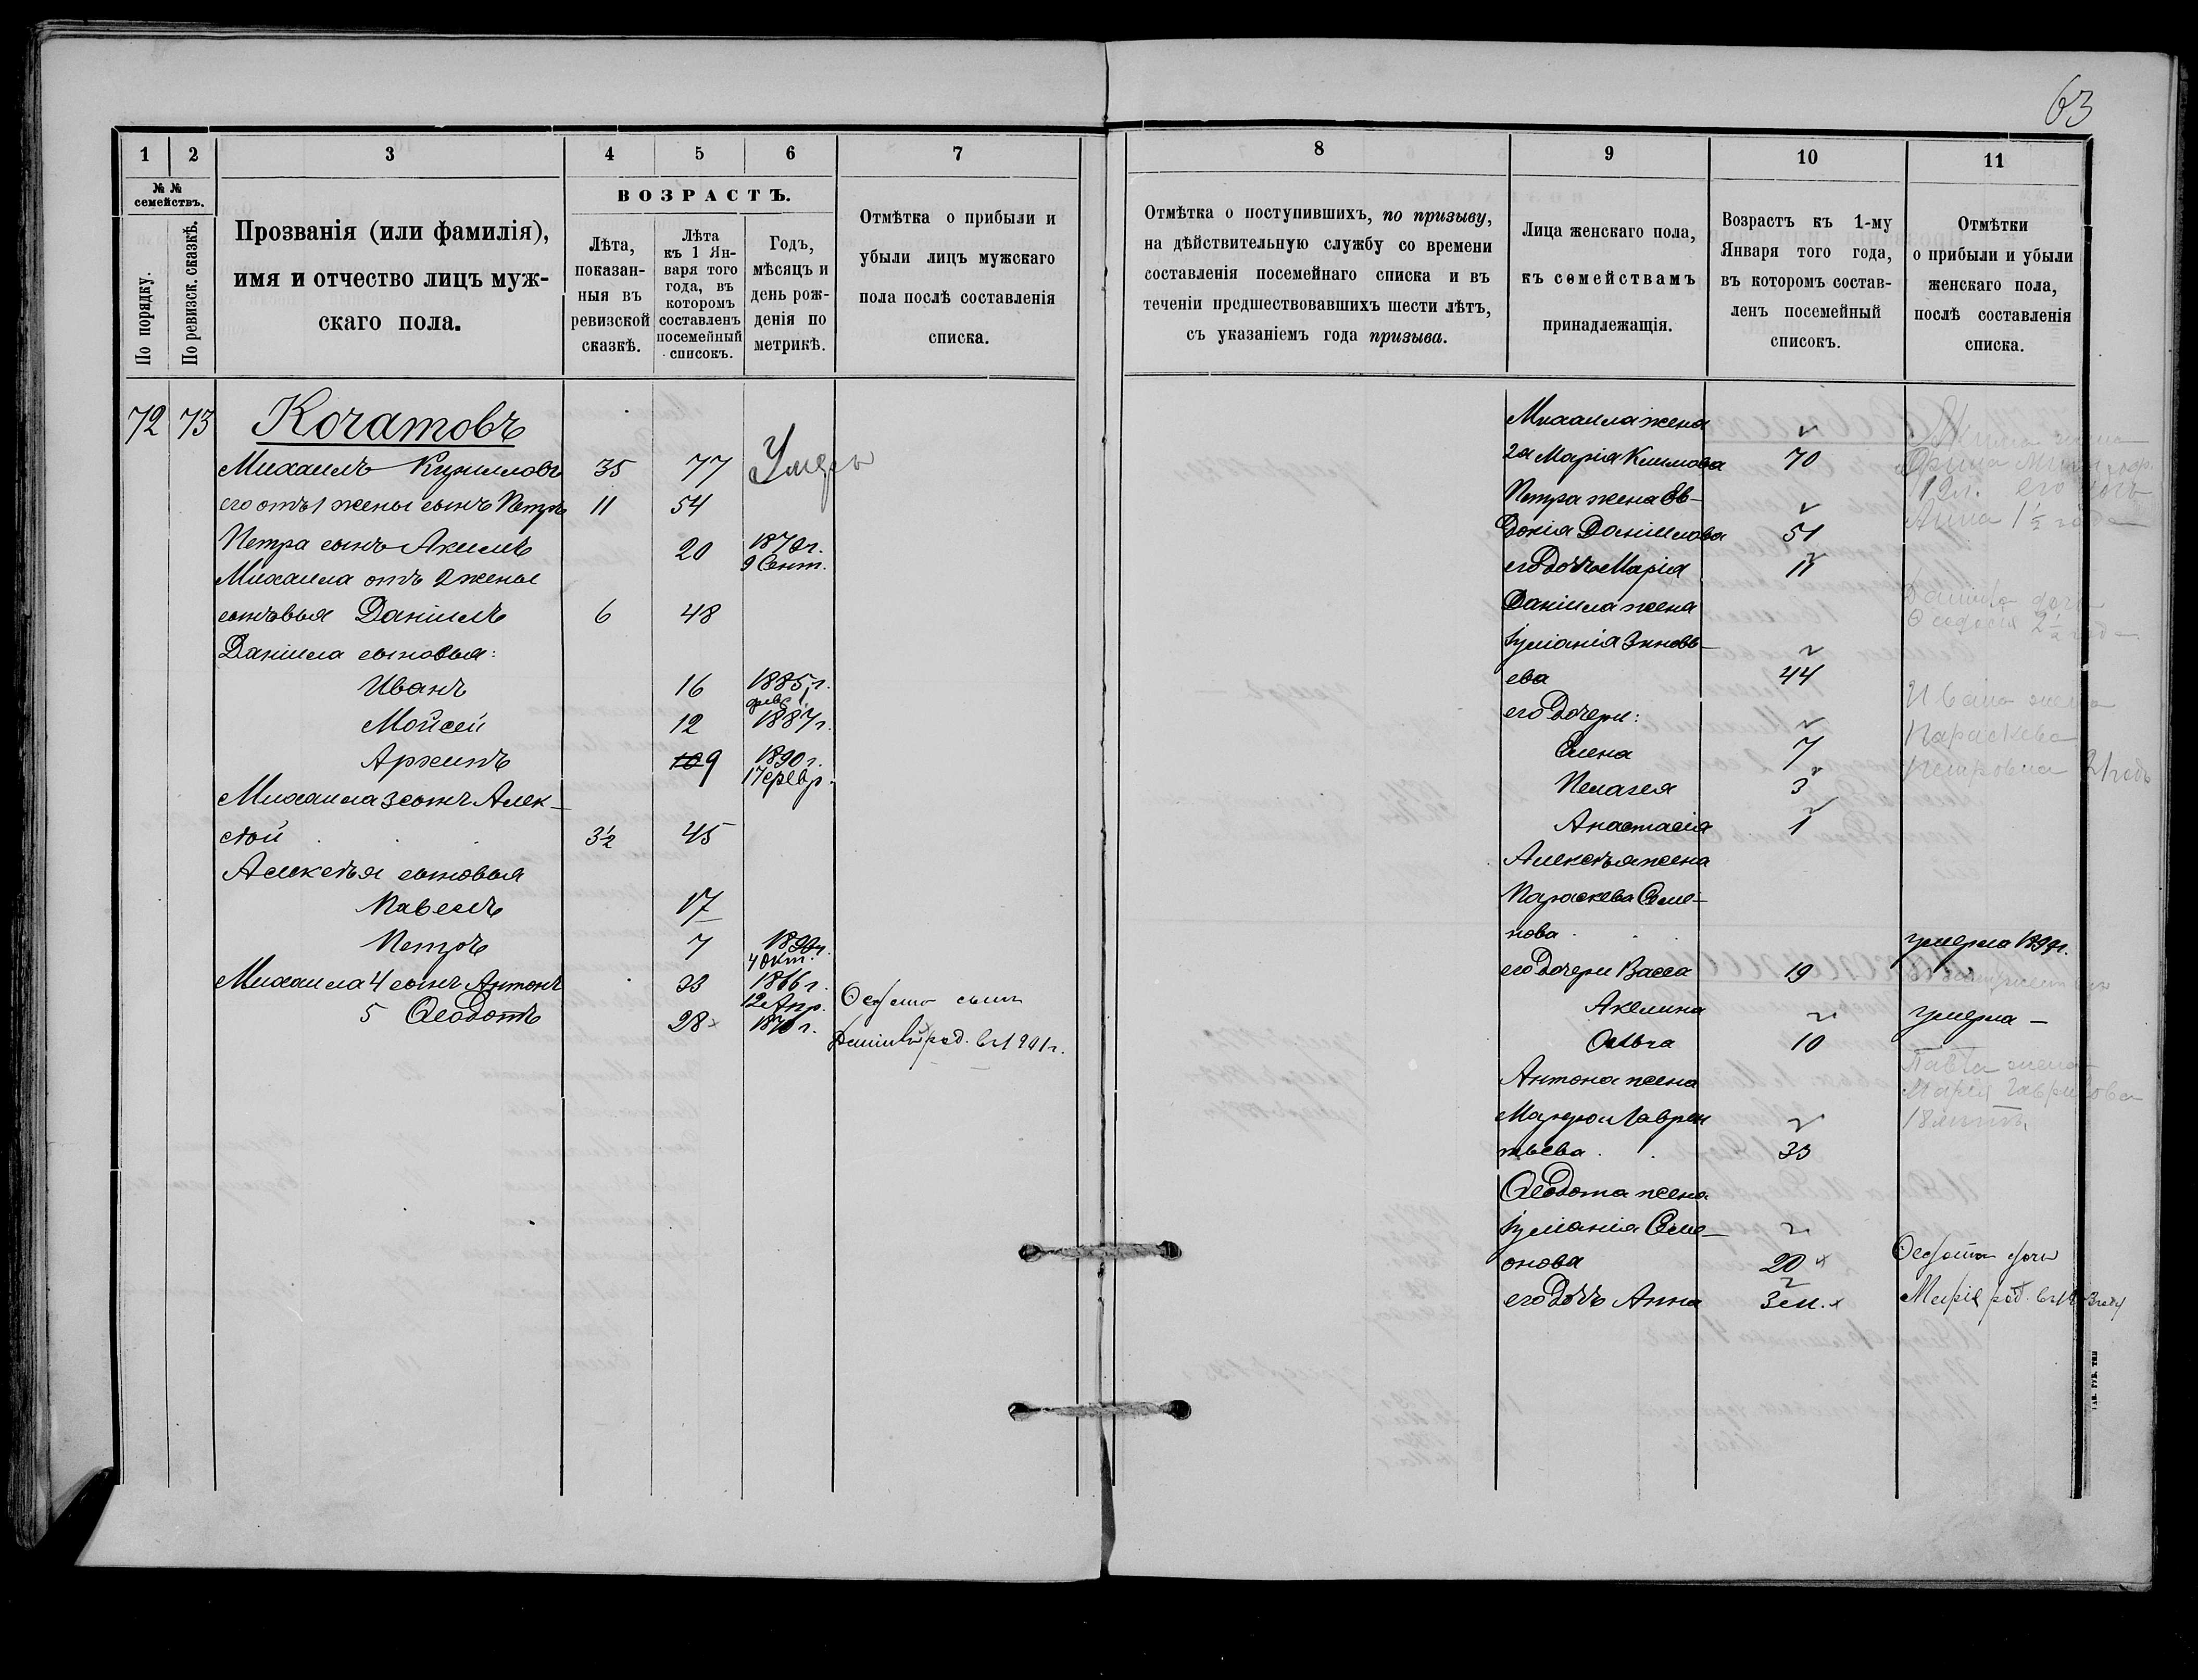 63
1 2 3 4 5 6 7
№ №
семействъ.
По порядку.
По ревизск. сказкѣ.
Прозванія (или фамилія),
имя и отчество лицъ муж-
скаго пола.
ВОЗРАСТЪ.
Лѣта,
показан-
ныя въ
ревизской
сказкѣ.
Лѣта
къ 1 Ян-
варя того
года, въ
которомъ
составленъ
посемейный
списокъ.
Годъ,
мѣсяцъ и
день рож-
денія по
метрикѣ.
Отмѣтка о прибыли и
убыли лицъ мужскаго
пола послѣ составленія
списка.
72 73 Кочатовъ
Михаилъ Кириловъ 35 77 Умеръ
его отъ 1 жены сынъ Петръ 11 54
Петра сынъ Акимъ 20 1879г.
9 Сент.
Михаила отъ 2 жены
сыновья Даніилъ 6 48
Даніила сыновья:
Иванъ 16 1885г.
февр. 1
Мойсей 12 1887г.
Архипъ 10 9 1890г.
17 февр.
Михаила 3 сынъ Алек-
сѣй 3½ 45
Алексѣя сыновья
Павелъ 17
Петръ 7
4 Окт.
Михаила 4 сынъ Антонъ 33 1866г.
12 Апр.
5 Ѳеодотъ 28 1870г.
Ѳедота сынъ
род. въ 1901г.
8 9 10 11
Отмѣтка о поступившихъ, по призыву,
на дѣйствительную службу со времени
составленія посемейнаго списка и въ
теченіи предшествовавшихъ шести лѣтъ,
съ указаніемъ года призыва.
Лица женскаго пола,
къ семействамъ
принадлежащія.
Возрастъ къ 1-му
Января того года,
въ которомъ состав-
ленъ посемейный
списокъ.
Отмѣтки
о прибыли и убыли
женскаго пола,
послѣ составленія
списка.
Михаила жена
2я Марія Климова 70
Петра жена Ев-
докія Даніилова 51
его дочь Марія 11
Даніила жена
Іуліанія Зиновь-
ева 44
его дочери:
Елена 7
Пелагея 3
Анастасія 1
Алексѣя жена
Параскева Семе-
нова умерла 1899г.
его дочери Васса 19
Акелина умерла —
Ольга 10
Антона жена
Марѳа Лаврен
тьева 33
Ѳеодота жена
Іуліанія Семе-
онова 20
его дочь Анна 3 м.
жена
Арина
19л. его дочь
Анна 1½ года
Данила дочь
Ѳедосія 2½ года
Ивана жена
Параскева
Петровна 21 годъ
Павла жена
Марія Гаврилова
18 лѣтъ
Ѳедота дочь
Марія род.